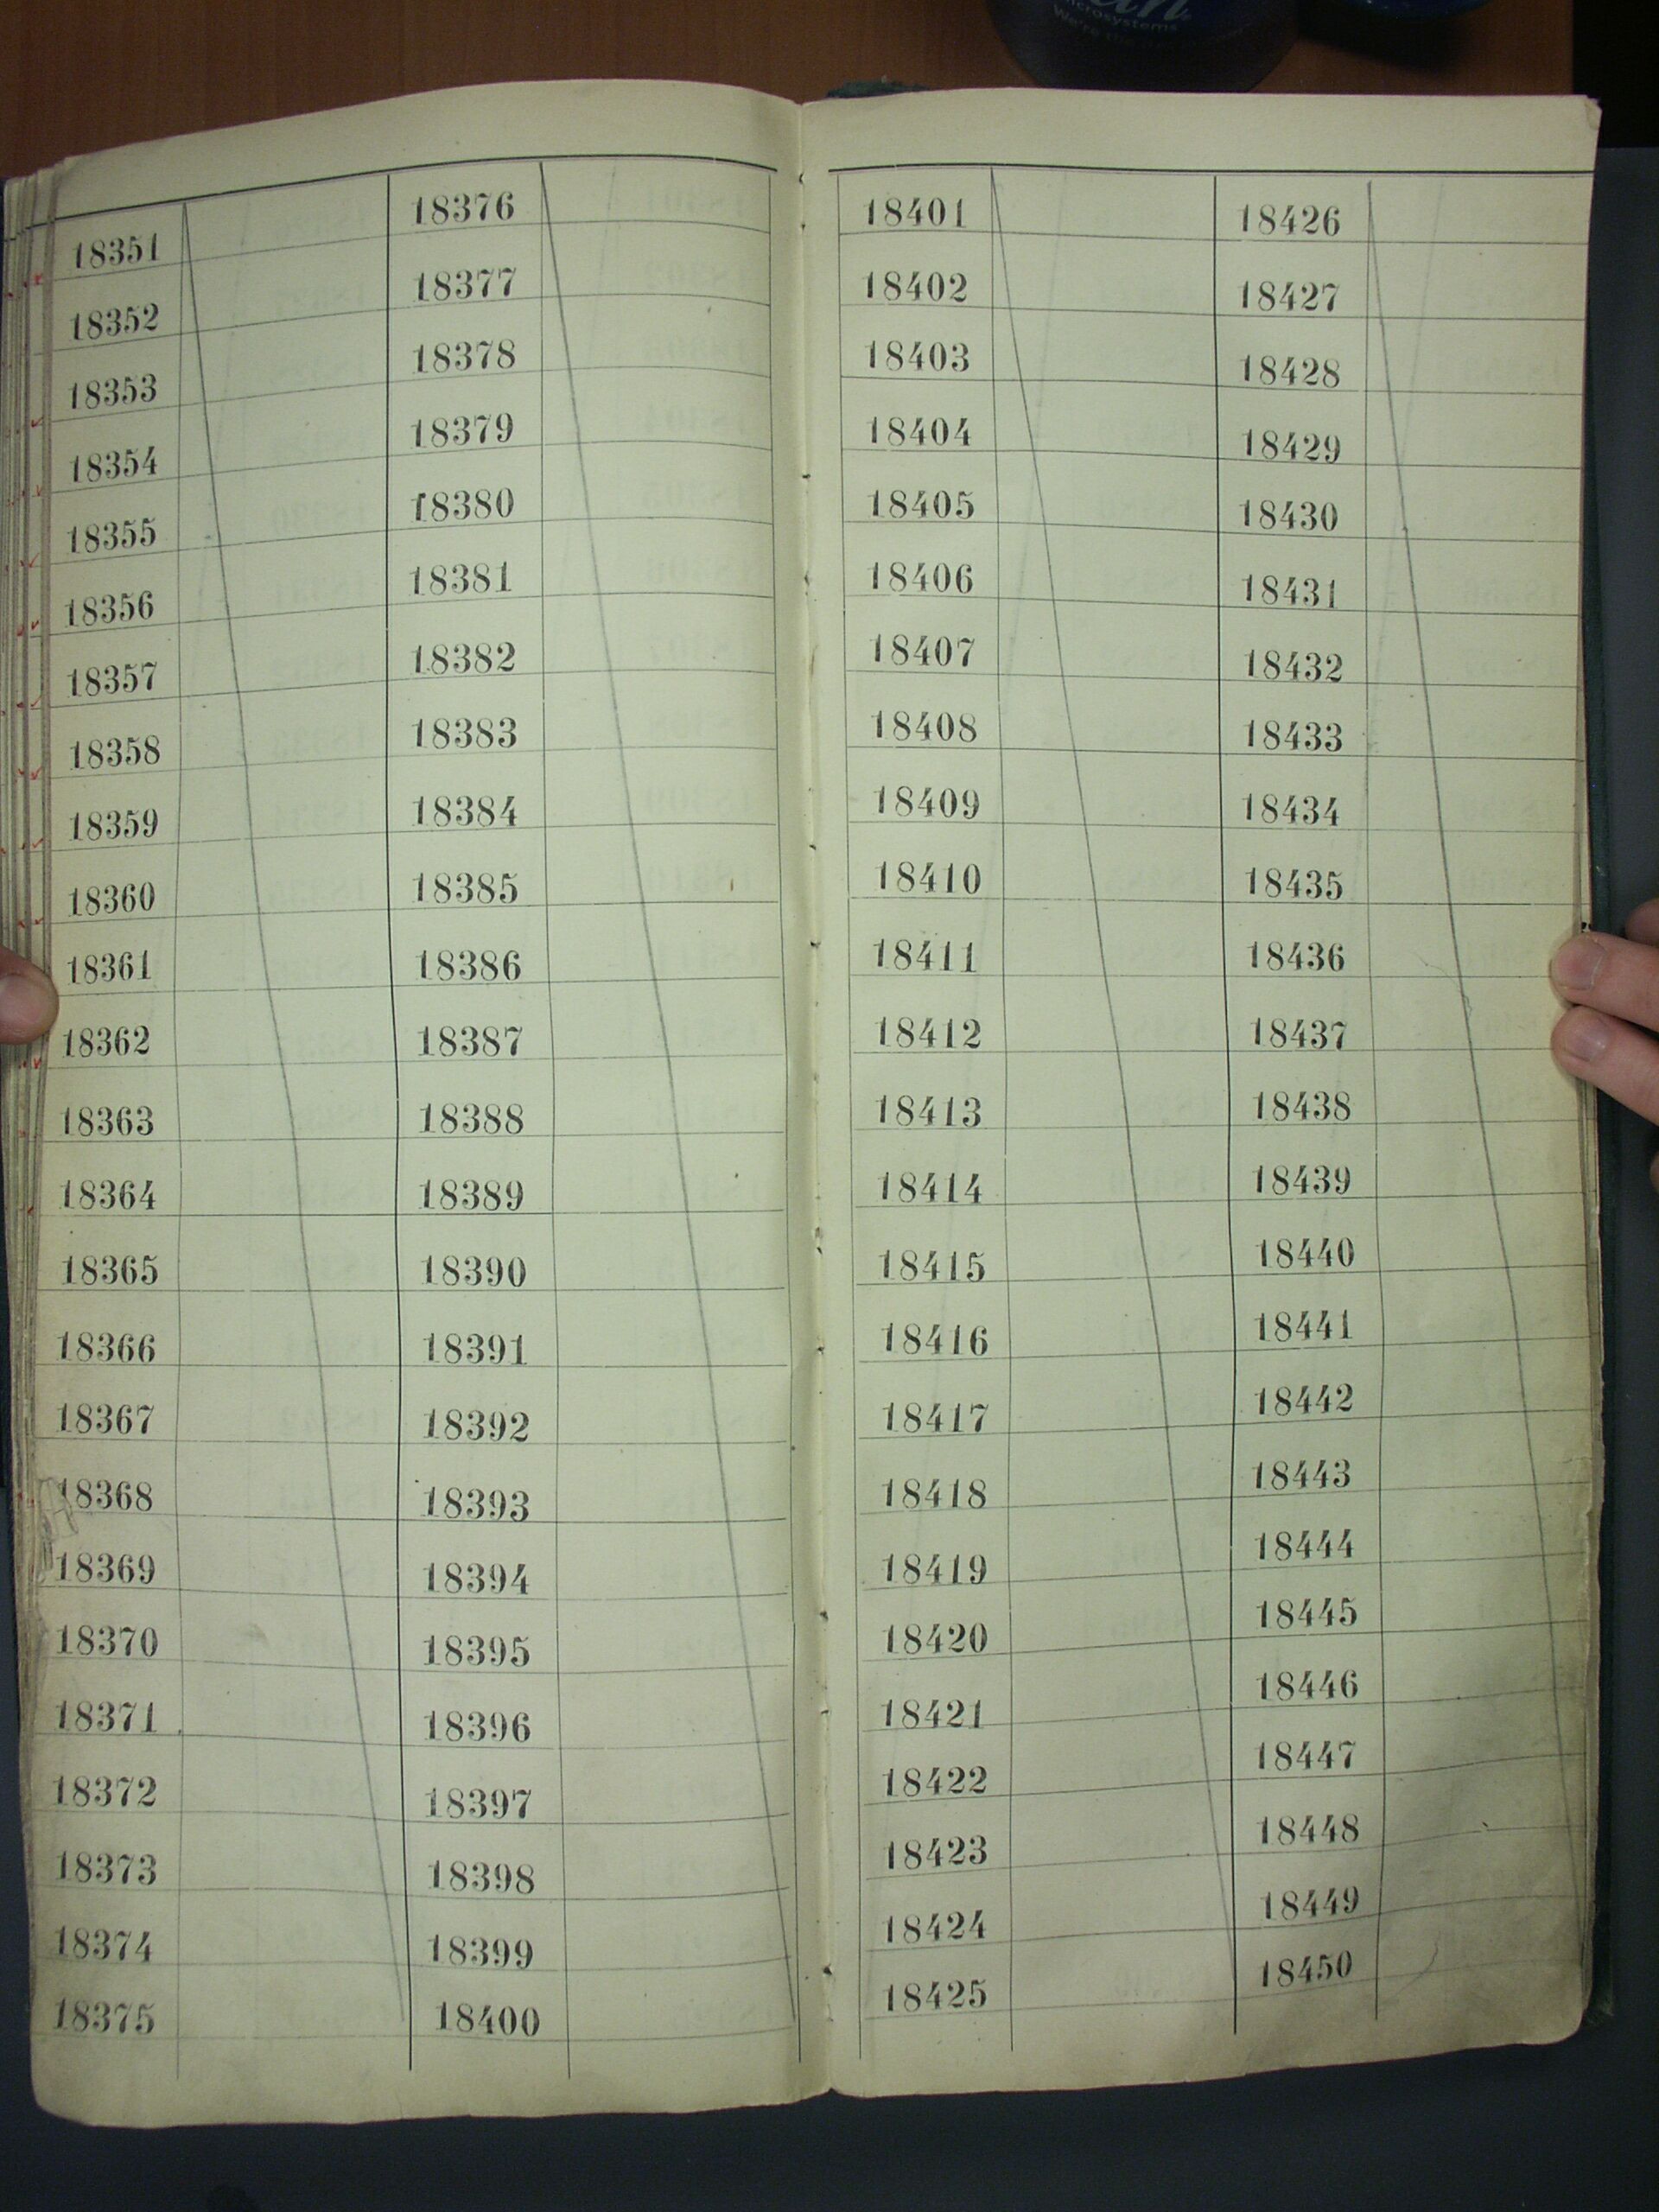 18351
18352
18353
18354
18355
18356
18357
18358
18359
18360
18361
18362
18363
18364
18365
18366
18367
18368
18369
18370
18371
18372
18373
18374
18375
18376
18377
18378
18379
18380
18381
18382
18383
18384
18385
18386
18387
18388
18389
18390
18391
18392
18393
18394
18395
18396
18397
18398
18399
18400
18401
18402
18403
18404
18405
18406
18407
18408
18409
18410
18411
18412
18413
18414
18415
18416
18417
18418
18419
18420
18421
18422
18423
18424
18425
18426
18427
18428
18429
18430
18431
18432
18433
18434
18435
18436
18437
18438
18439
18440
18441
18442
18443
18444
18445
18446
18447
18448
18449
18450
microsystems